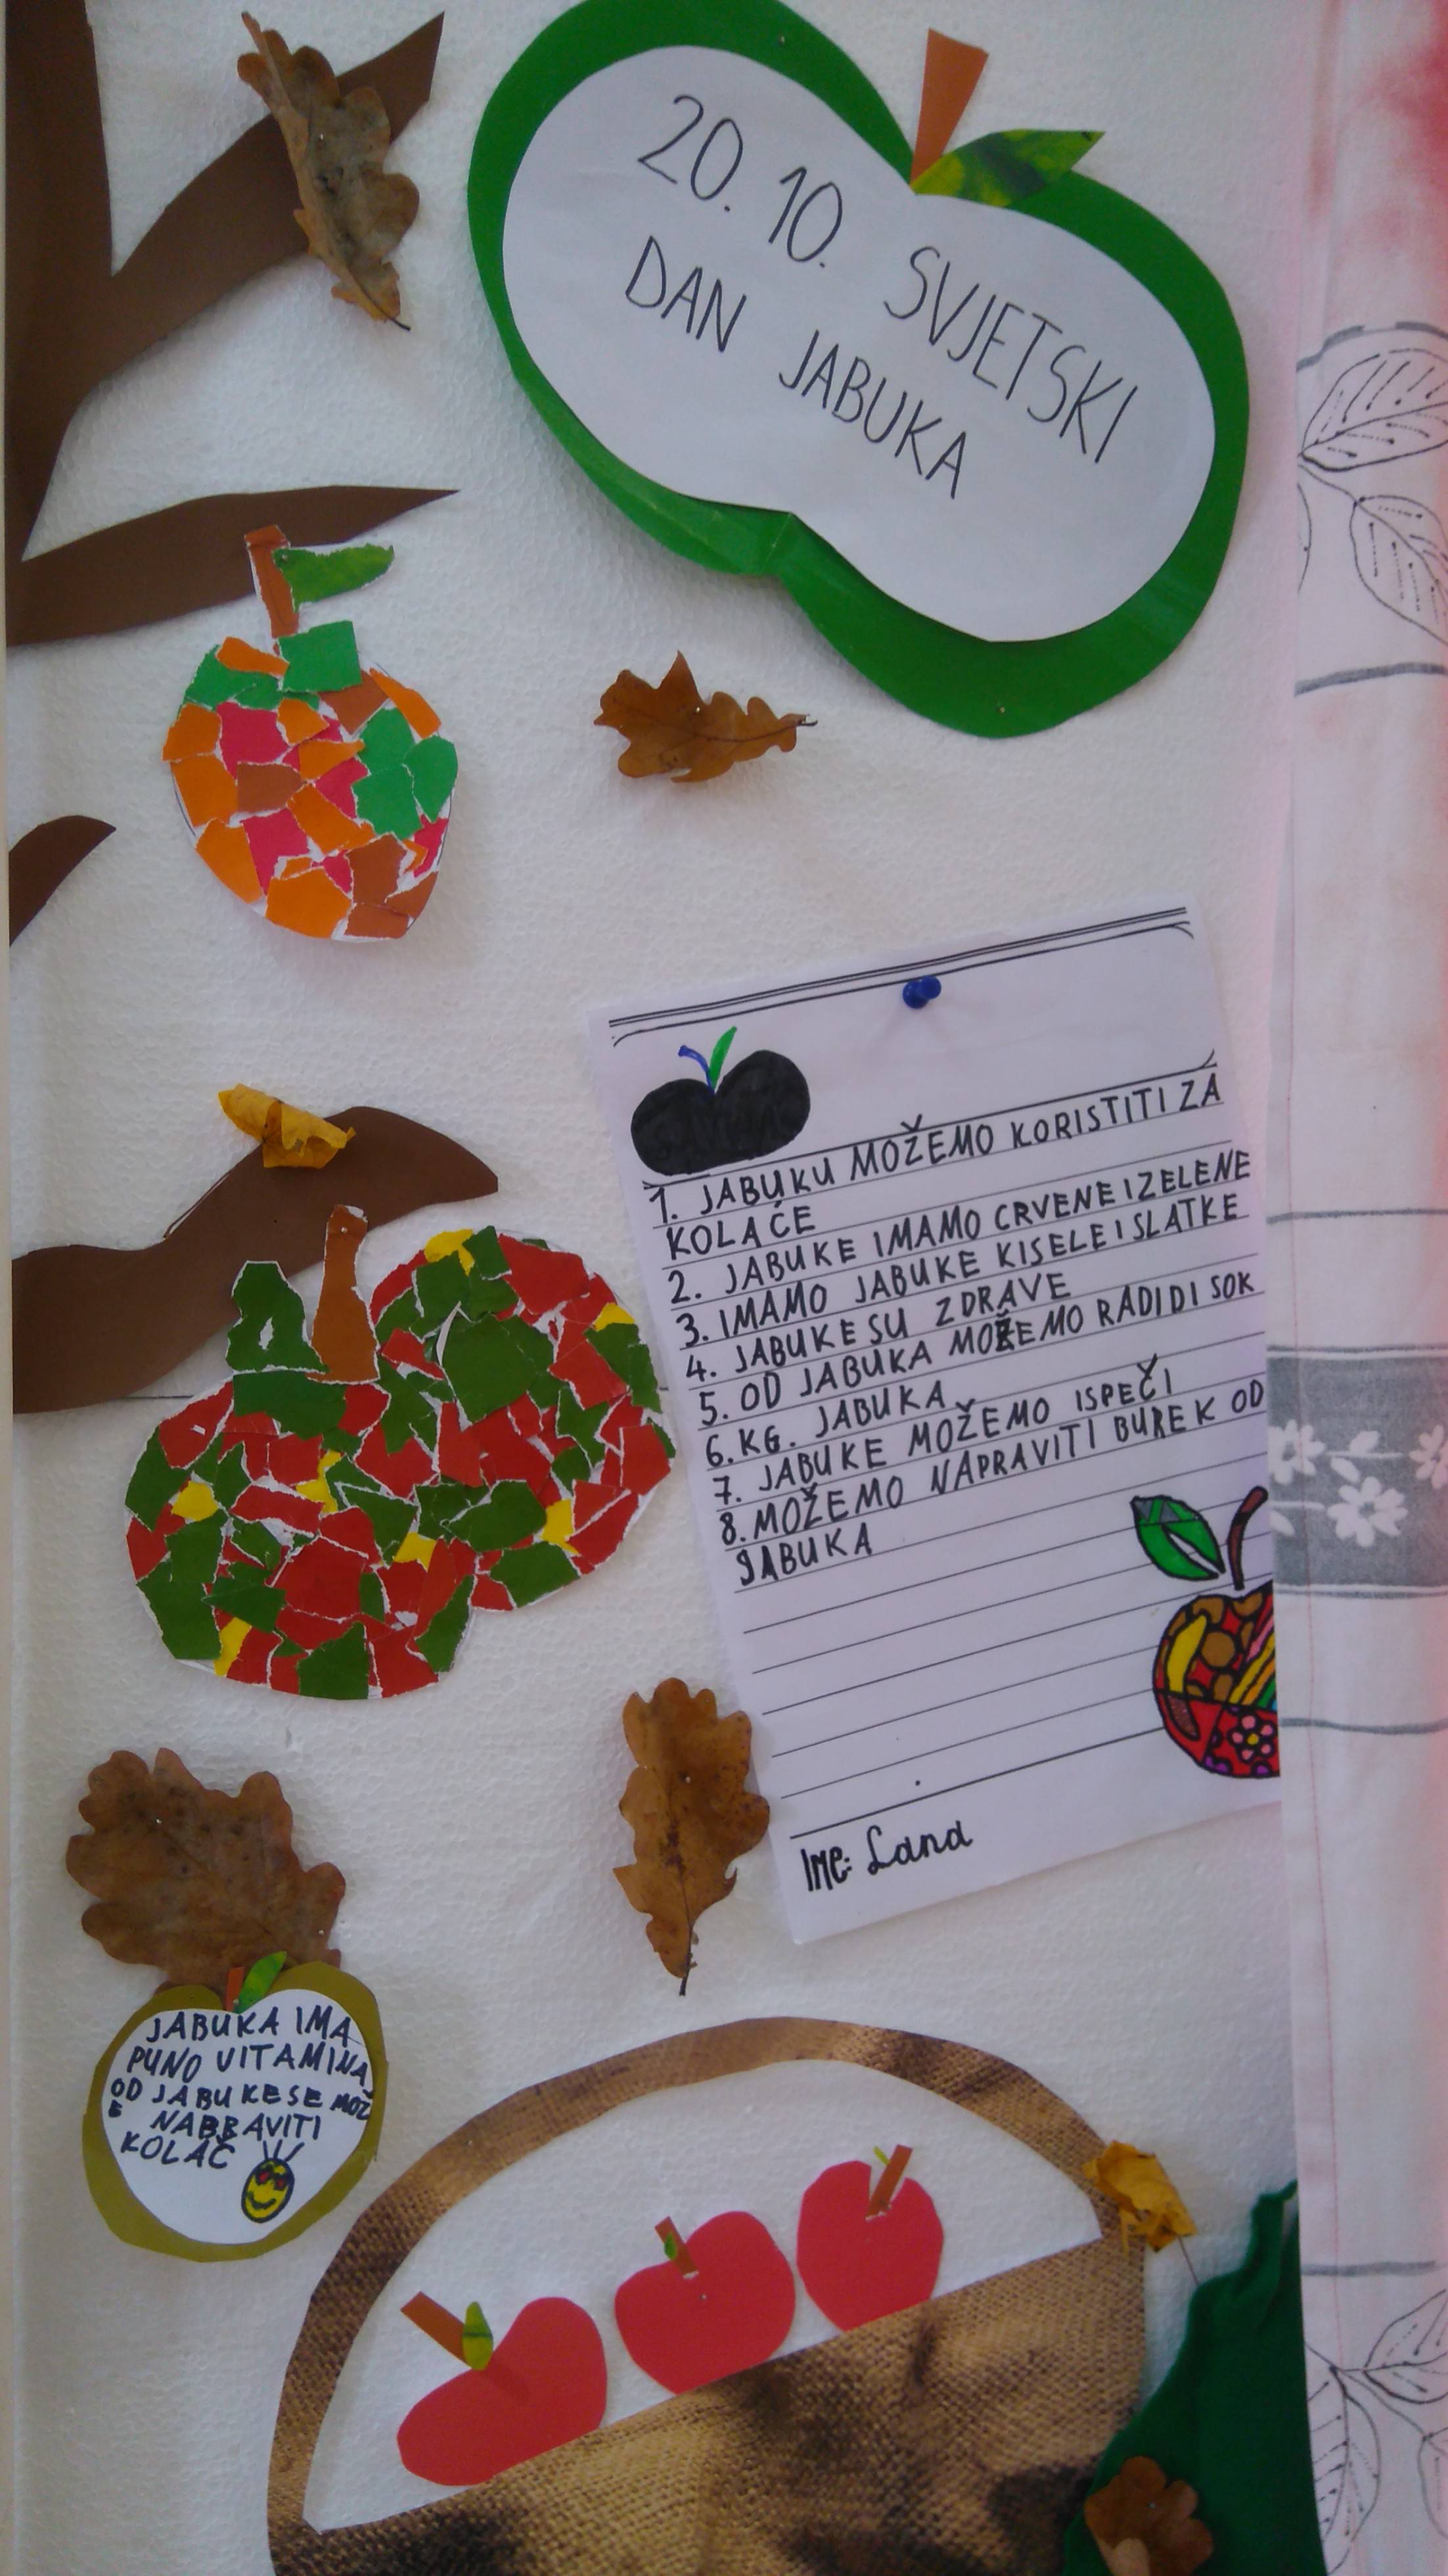 20. 10. SVJETSKI
DAN JABUKA
1. JABUKU MOŽEMO KORISTITI ZA
KOLAČE
2. JABUKE IMAMO CRVENE I ZELENE
3. IMAMO JABUKE KISELE I SLATKE
4. JABUKE SU ZDRAVE
5. OD JABUKA MOŽEMO RADIDI SOK
6. KG. JABUKA
7. JABUKE MOŽEMO ISPEČI
8. MOŽEMO NAPRAVITI BUREK OD
JABUKA
IME: Lana
JABUKA IMA
PUNO VITAMINA
OD JABUKE SE MOŽ
E NABRAVITI
KOLAČ